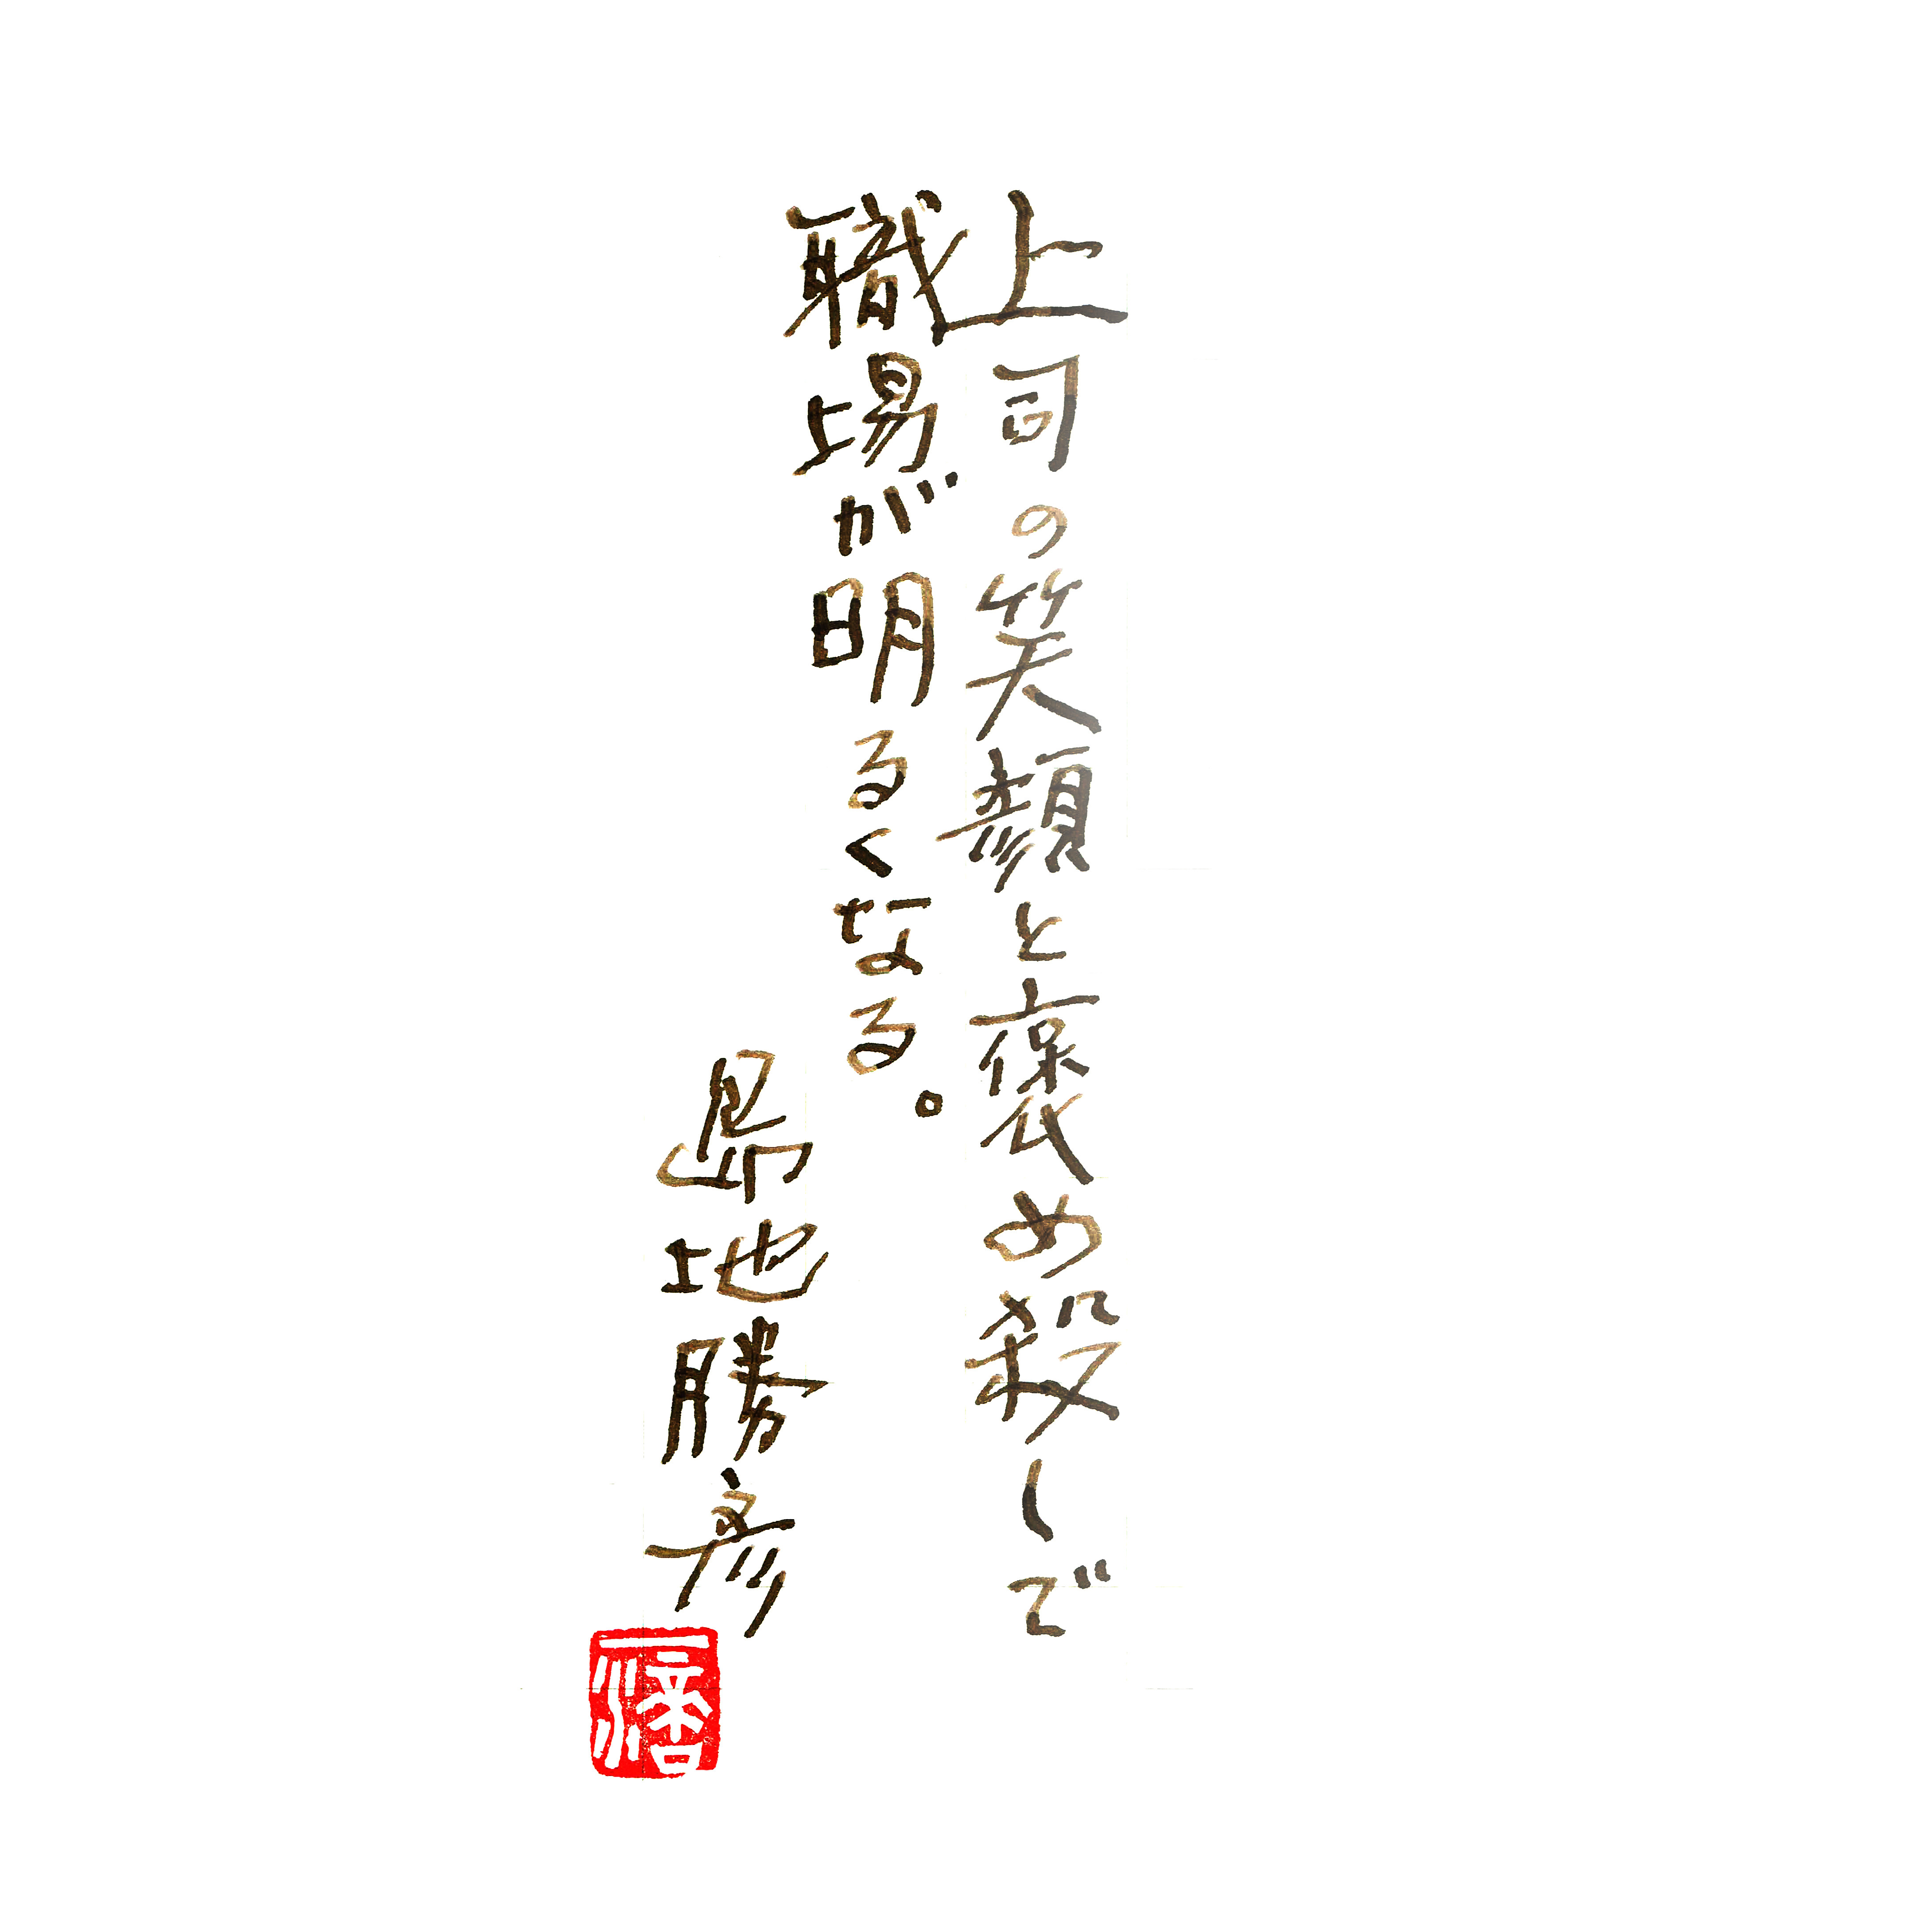 上司の笑顔と褒め殺しで
職場が明るくなる。
島地勝彦